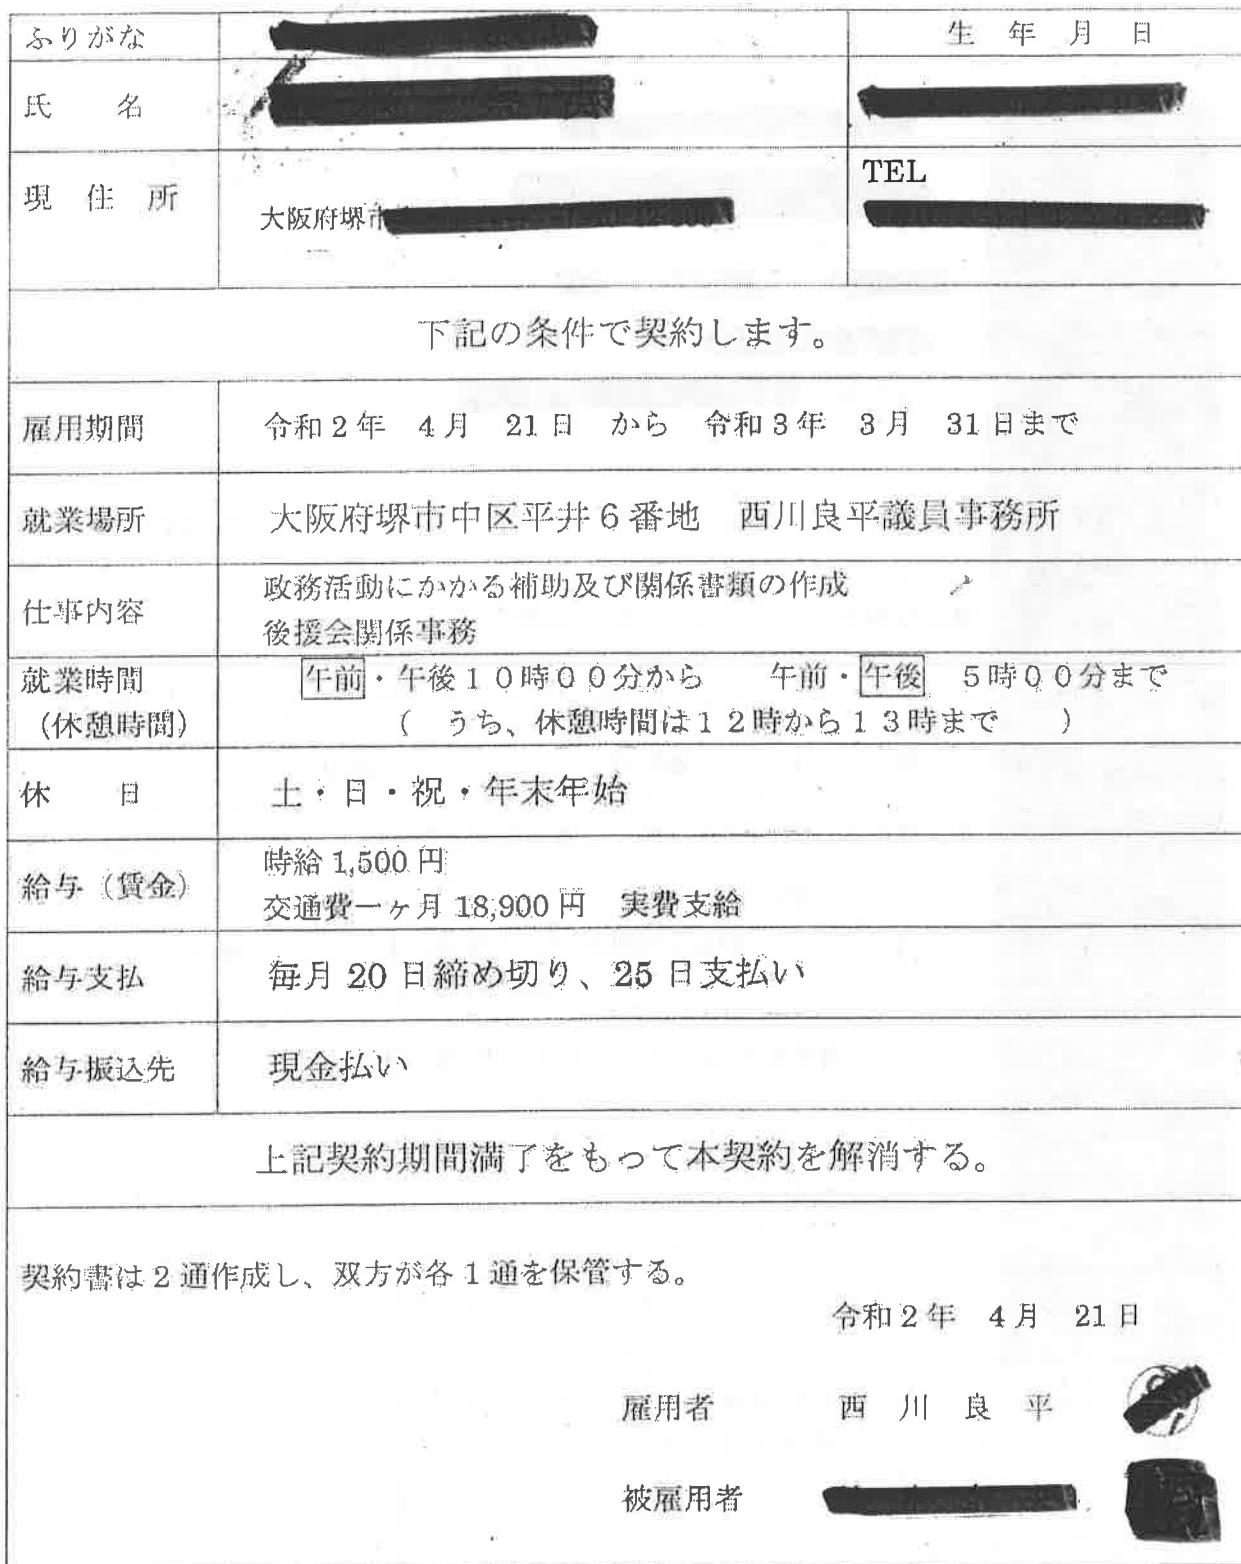 ふりがな
生 年 月 日
氏 名
現 住 所
大阪府堺市
TEL
下記の条件で契約します。
雇用期間 令和2年 4月 21日 から 令和3年 3月 31日まで
就業場所 大阪府堺市中区平井6番地 西川良平議員事務所
仕事内容
政務活動にかかる補助及び関係書類の作成
後援会関係事務
就業時間 午前・午後10時00分から 午前・午後 5時00分まで
(休憩時間) ( うち、休憩時間は12時から13時まで )
休 日 土・日・祝・年末年始
給与(賃金)
時給 1,500 円
交通費一ヶ月 18,900 円 実費支給
給与支払 毎月 20 日締め切り、25 日支払い
給与振込先 現金払い
上記契約期間満了をもって本契約を解消する。
契約書は2通作成し、双方が各1通を保管する。
令和2年 4月 21日
雇用者 西 川 良 平
被雇用者